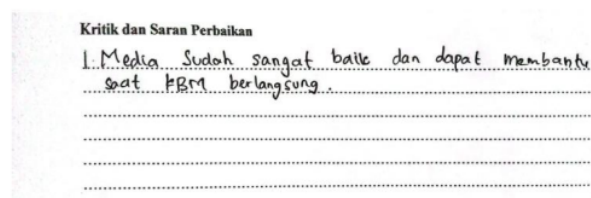 Kritik dan Saran Perbaikan
1. Media Sudah sangat baik dan dapat membantu
saat KBM berlangsung.